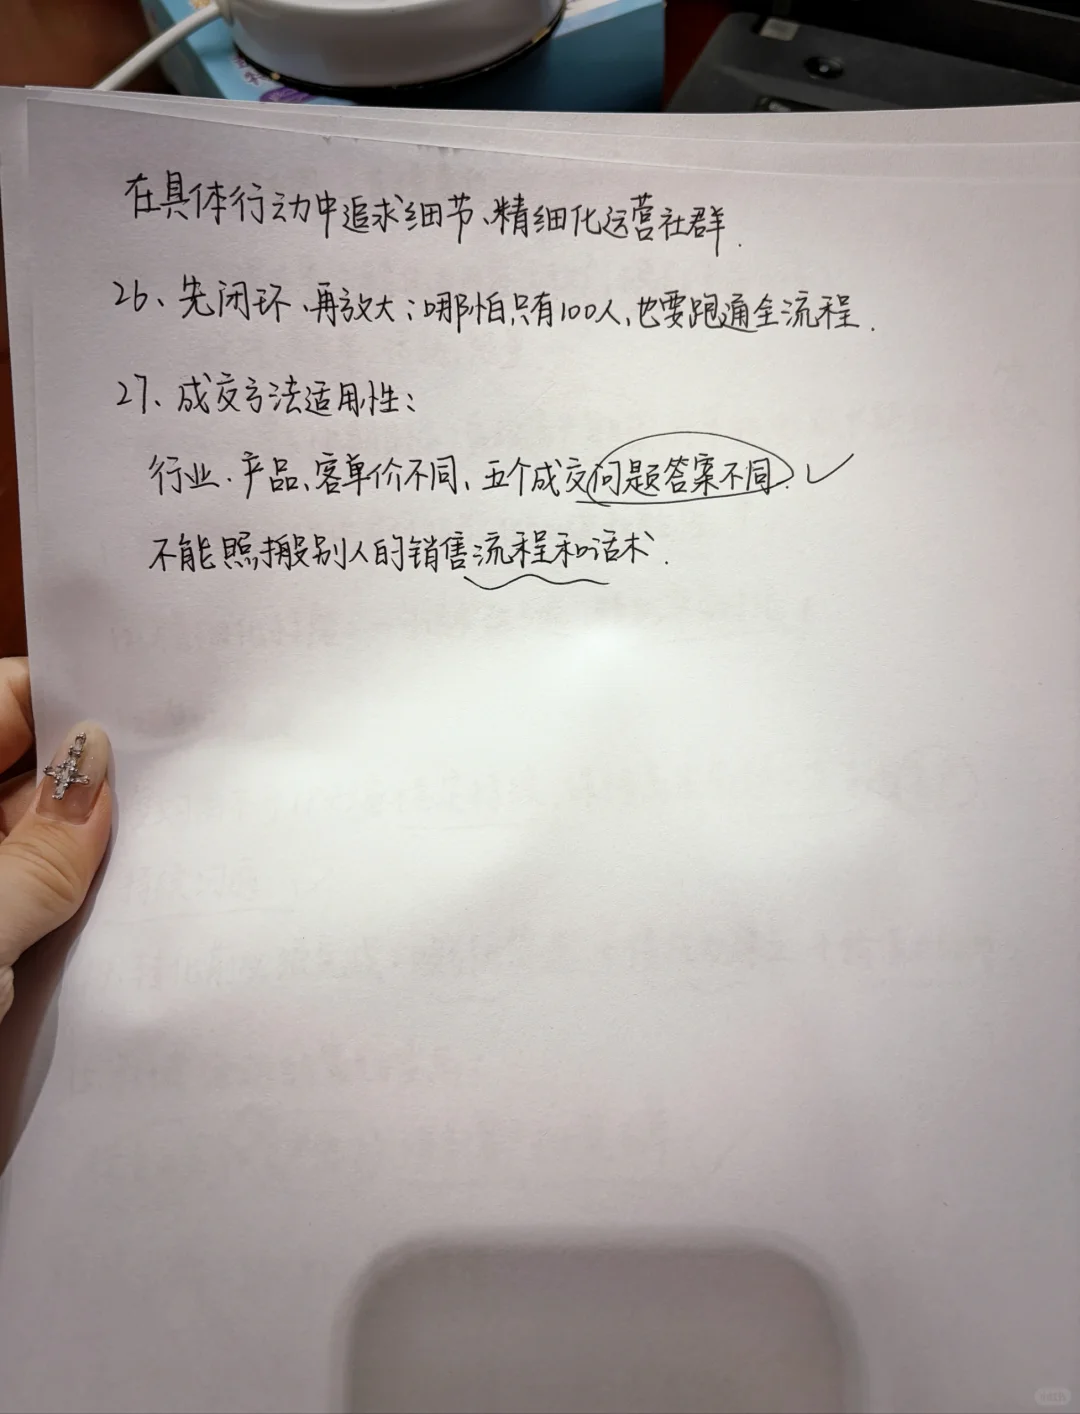 在具体行动中追求细节、精细化运营社群.
26、先闭环、再放大；哪怕只有100人、也要跑通全流程.
27、成交方法适用性：
行业、产品、客单价不同、五个成交问题答案不同.
不能照搬别人的销售流程和话术.